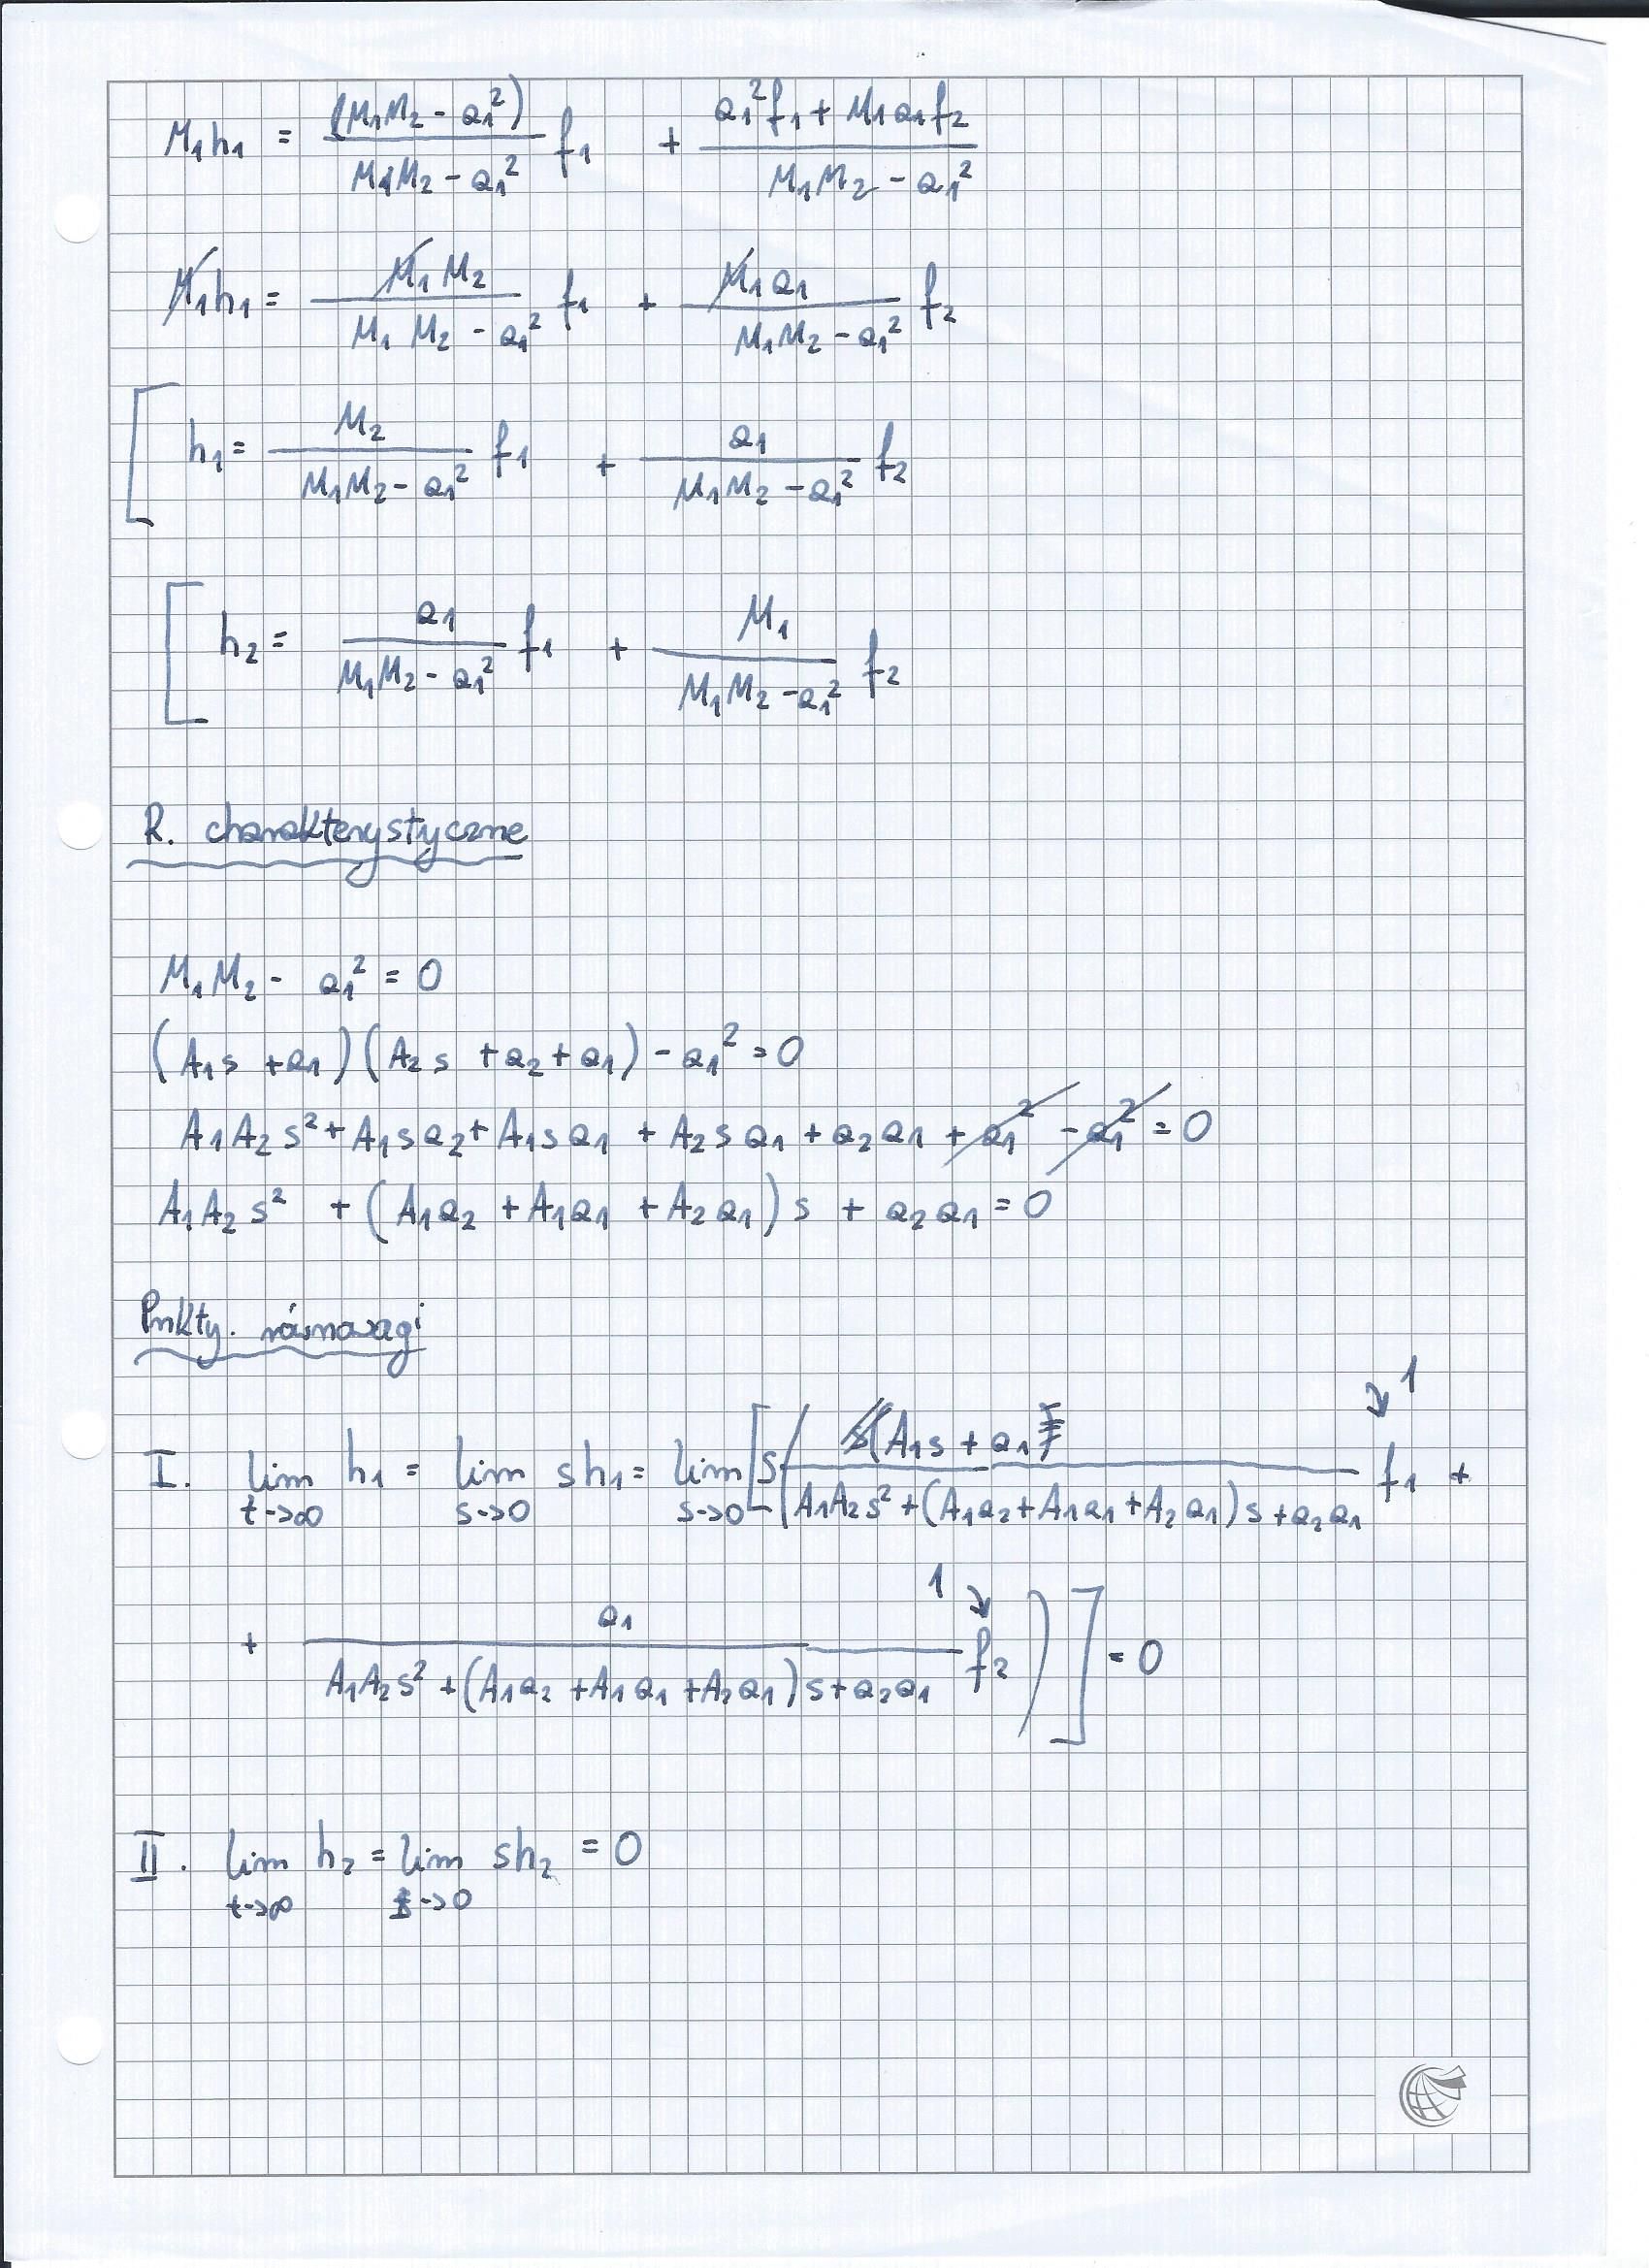 M₁h₁ = (M₁M₂ - a₁²) / (M₁M₂ - a₁²) f₁ + (a₁²f₁ + M₁a₁f₂) / (M₁M₂ - a₁²)
M₁h₁ = M₁M₂ / (M₁M₂ - a₁²) f₁ + M₁a₁ / (M₁M₂ - a₁²) f₂
[ h₁ = M₂ / (M₁M₂ - a₁²) f₁ + a₁ / (M₁M₂ - a₁²) f₂
[ h₂ = a₁ / (M₁M₂ - a₁²) f₁ + M₁ / (M₁M₂ - a₁²) f₂
R. charakterystyczne
M₁M₂ - a₁² = 0
(A₁s + a₁)(A₂s + a₂ + a₁) - a₁² = 0
A₁A₂s² + A₁sa₂ + A₁sa₁ + A₂sa₁ + a₂a₁ + a₁² - a₁² = 0
A₁A₂s² + (A₁a₂ + A₁a₁ + A₂a₁)s + a₂a₁ = 0
Pnkty. równowagi
1
I. lim t->∞ h₁ = lim s->0 sh₁ = lim s->0 [s( A₁s + a₁ / (A₁A₂s² + (A₁a₂ + A₁a₁ + A₂a₁)s + a₂a₁) f₁ +
1
+ a₁ / (A₁A₂s² + (A₁a₂ + A₁a₁ + A₂a₁)s + a₂a₁) f₂ )] = 0
II. lim t->∞ h₂ = lim s->0 sh₂ = 0